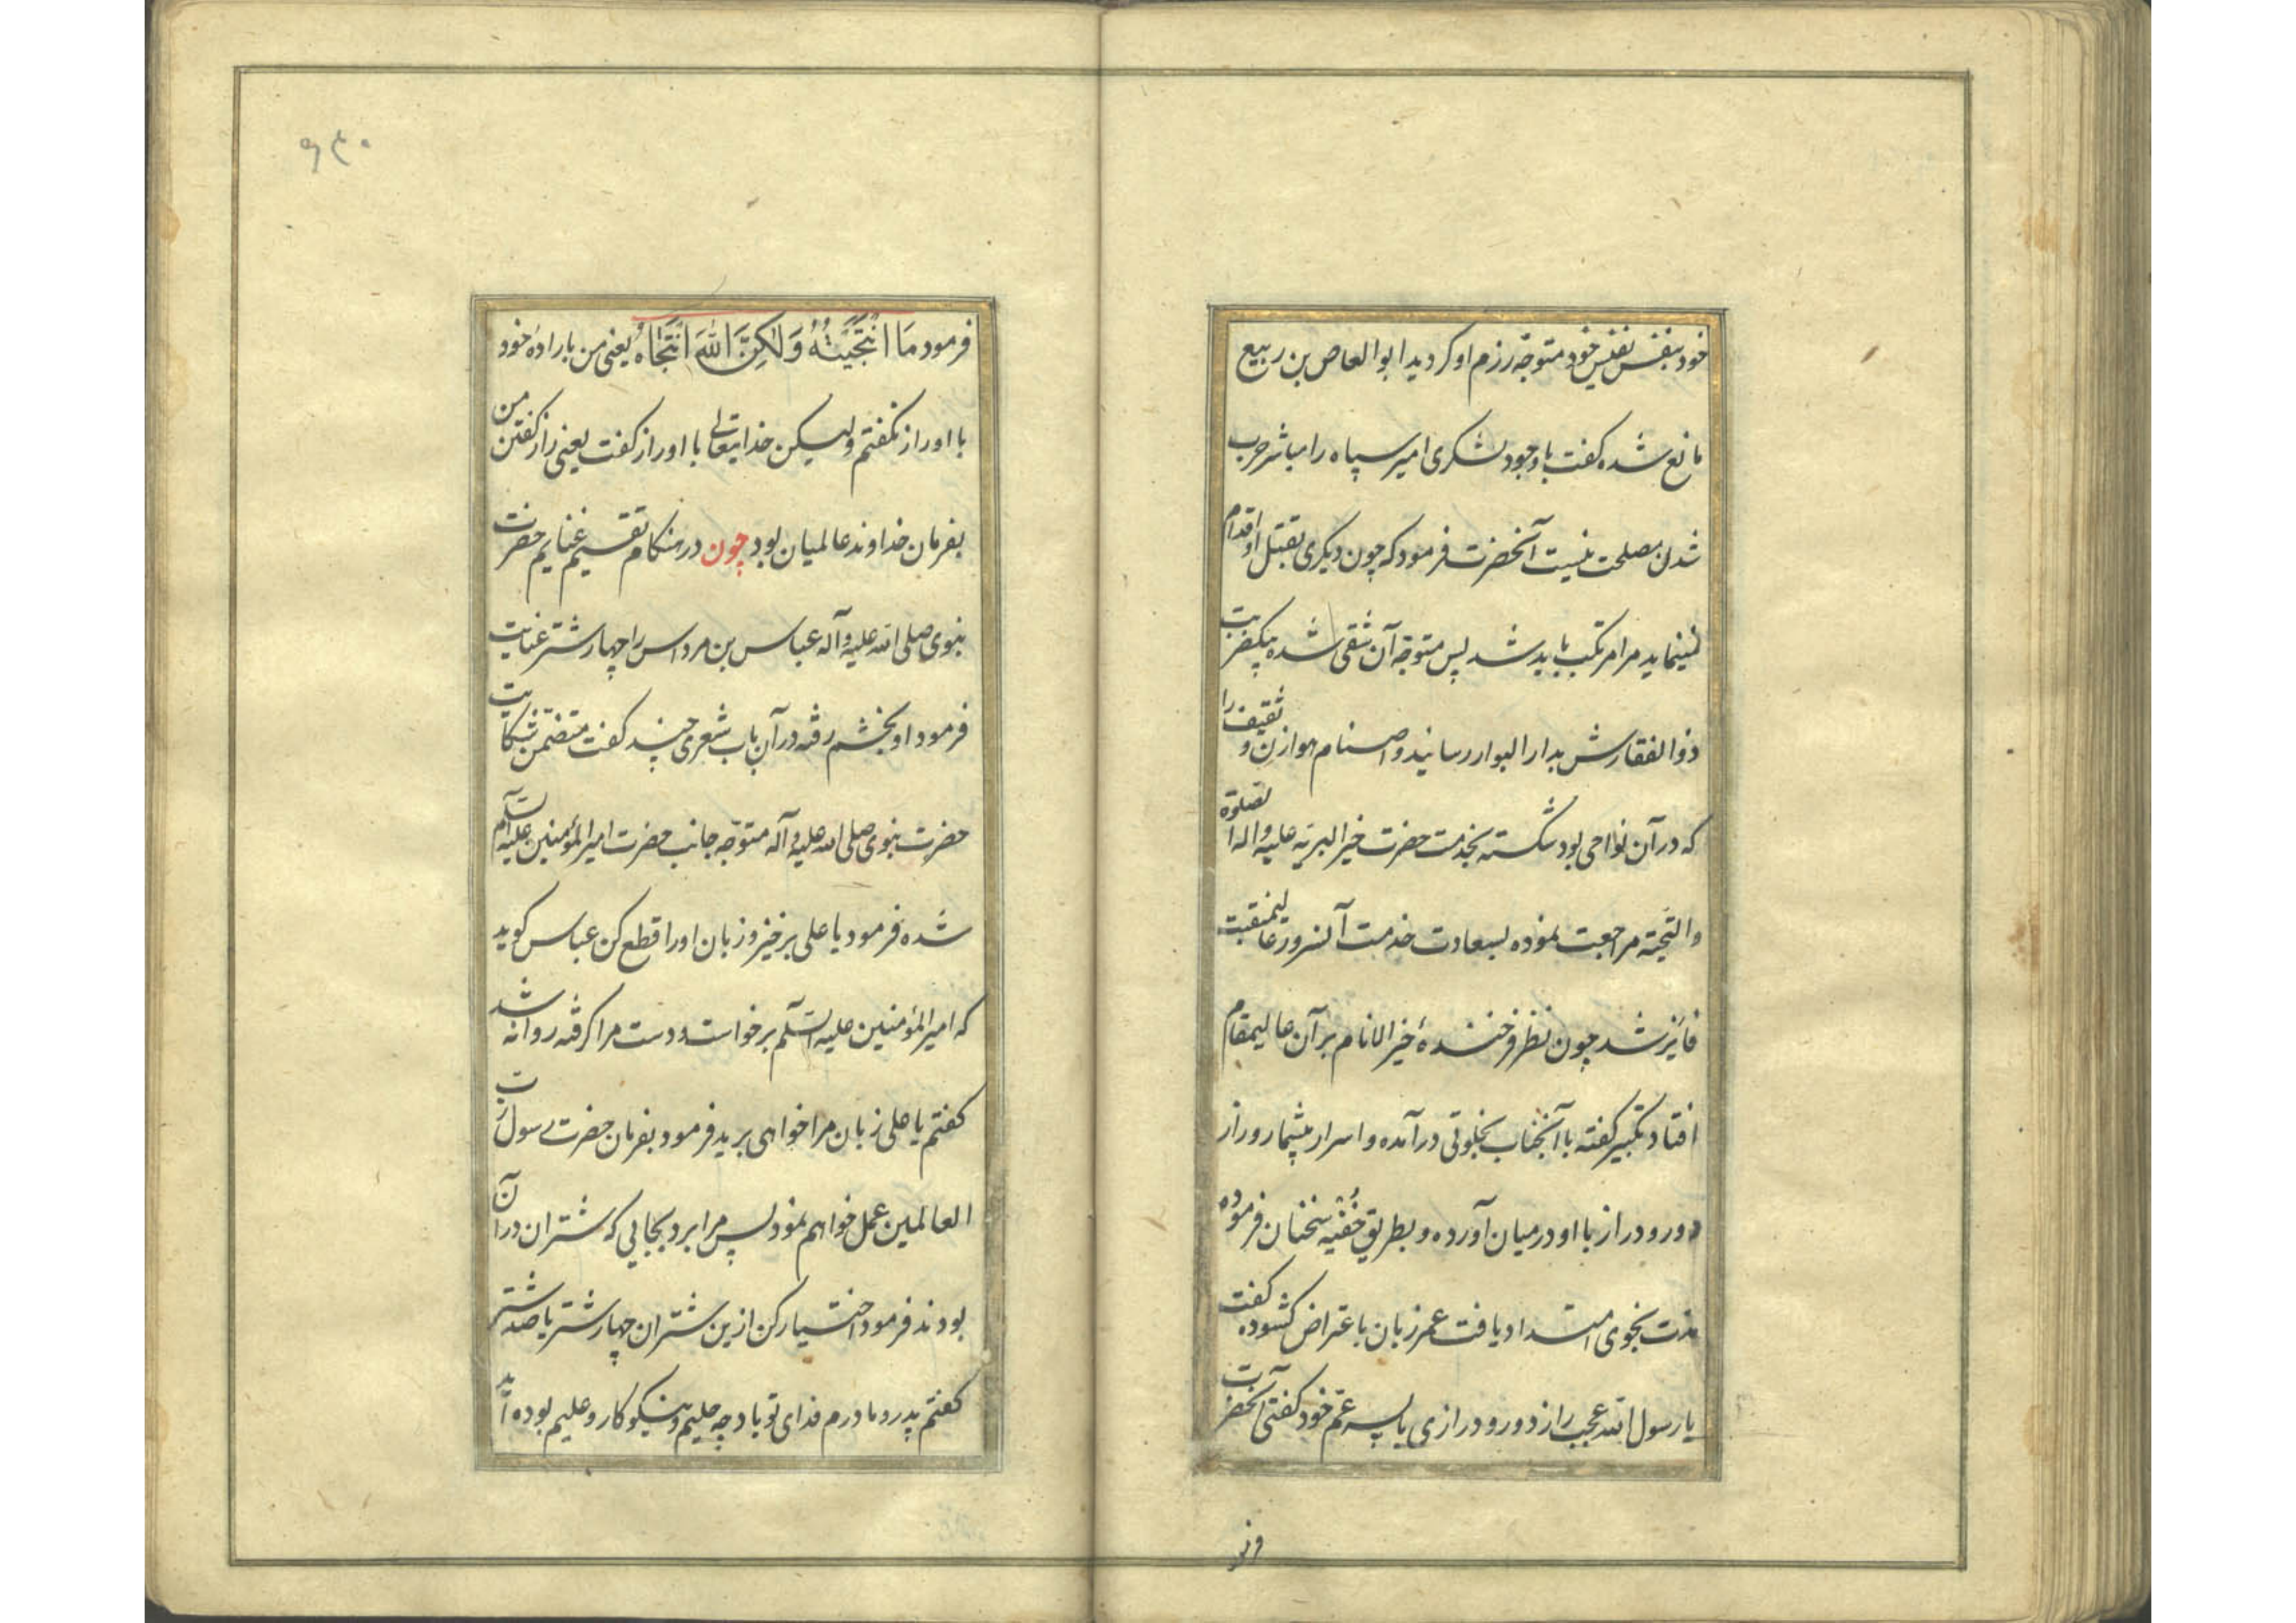 خود بنفس نفیس خود متوجّه رزم او کردید ابو العاص بن ربیع
مانع شده کفت با وجود لشکری امیر سپاه را مباشر حرب
شدن مصلحت نیست آنحضرت فرمود که چون دیکری بقتل او اقدام
نمینماید مرا مرتکب باید شد پس متوجّه آن شقی شده بیکضربت
ذوالفقارش بدار البوار رسانید و اصنام هوازن و ثقیف را
که در آن نواحی بود شکسته بخدمت حضرت خیر البریّه علیه و آله الصلوة
والتحیّته مراجعت نموده بسعادت خدمت آنسرور عالیمنقبت
فائز شد چون نظر فرخندهٔ خیر الانام بر آن عالیمقام
افتاد تکبیر کفته با آنجناب بخلوتی درآمده و اسرار بیشمار و راز
دور و دراز با او درمیان آورده و بطریق خُفْیه سخنان فرموده
مدت نجوی امتداد یافت عمر زبان باعتراض کشوده کفت
یا رسول الله عجب راز دور و درازی با پسر عمّ خود کفتی آنحضرت
فرمود
۹۴۰
فرمود مَا انْتَجَیْتُهُ وَلٰکِنَّ اللّٰهَ انْتَجَاهُ یعنی من باراده خود
با او راز نکفتم ولیکن خدایتعالی با او راز کفت یعنی راز کفتن من
بفرمان خداوند عالمیان بود چون در هنکام تقسیم غنایم حضرت
نبوی صلی الله علیه و آله عباس بن مرداس را چهار شتر عنایت
فرمود او بخشم رفته در آن باب شعری چند کفت متضمّن شکایت
حضرت نبوی صلی الله علیه و آله متوجّه جانب حضرت امیر المؤمنین علیه السّلام
شده فرمود یا علی برخیز و زبان او را قطع کن عباس کوید
که امیر المؤمنین علیه السّلم برخواست و دست مرا کرفته روانه شد
کفتم یا علی زبان مرا خواهی برید فرمود بفرمان حضرت رسول ربّ
العالمین عمل خواهم نمود پس مرا برد بجایی که شتران در آن
بودند فرمود اختیار کن ازین شتران چهار شتر یا صد شتر
کفتم پدر و مادرم فدای تو باد چه حلیم و نیکوکار و علیم بوده‌اید